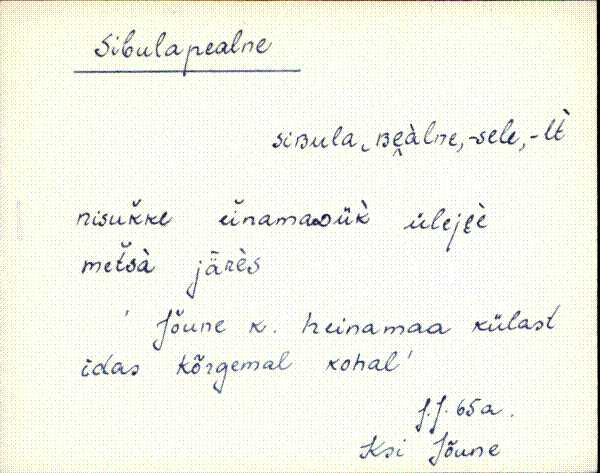 Sibulapealne
siвula‿вe̮àlne,-sele,-lt̀
nisuk̆ke eĭnamaaük̀ ülejɛè
met̆sà järès
' Jõune k. heinamaa külast
idas kõrgemal kohal'
J.J. 65 a.
Ksi Jõune